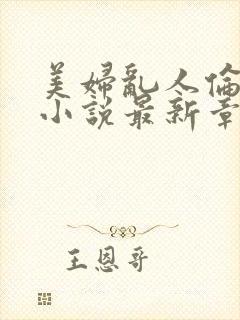 美婦亂人倫
小說最新章
王恩哥